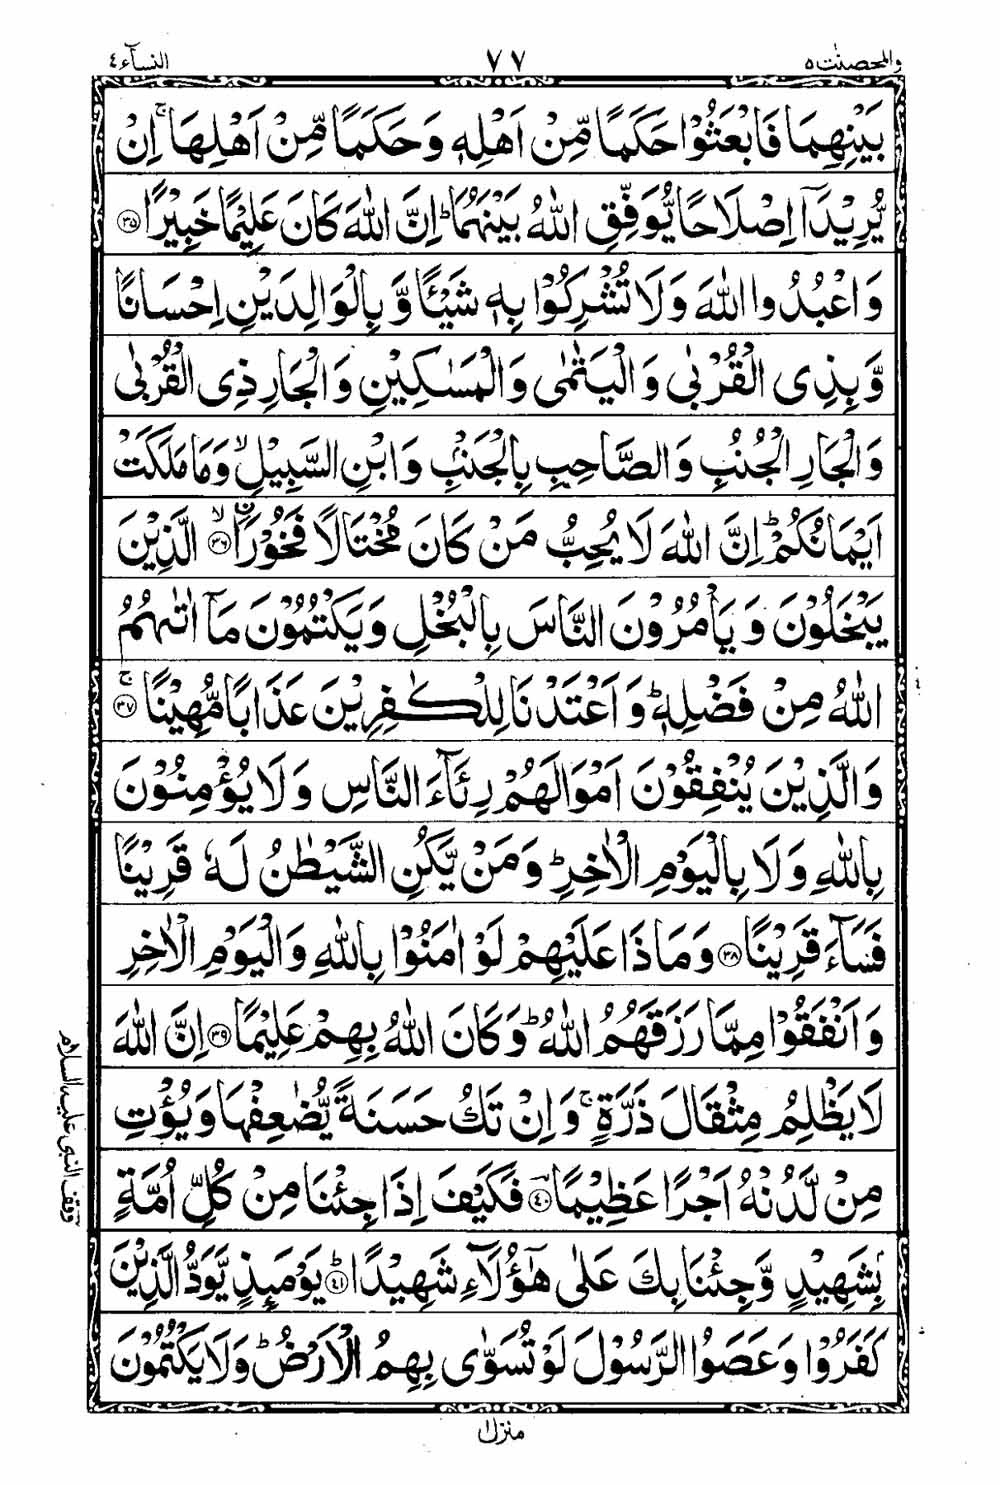 والمحصنٰت ٥
٧٧
النسآء ٤
بَيْنِهِمَا فَابْعَثُوْا حَكَمًا مِّنْ اَهْلِهٖ وَحَكَمًا مِّنْ اَهْلِهَا ۚ اِنْ
يُّرِيْدَاۤ اِصْلَاحًا يُّوَفِّقِ اللّٰهُ بَيْنَهُمَا ؕ اِنَّ اللّٰهَ كَانَ عَلِيْمًا خَبِيْرًا ﴿٣٥﴾
وَاعْبُدُوا اللّٰهَ وَلَا تُشْرِكُوْا بِهٖ شَيْـًٔا وَّبِالْوَالِدَيْنِ اِحْسَانًا
وَّبِذِى الْقُرْبٰى وَالْيَتٰمٰى وَالْمَسٰكِيْنِ وَالْجَارِ ذِى الْقُرْبٰى
وَالْجَارِ الْجُنُبِ وَالصَّاحِبِ بِالْجَنْۢبِ وَابْنِ السَّبِيْلِ ۙ وَمَا مَلَكَتْ
اَيْمَانُكُمْ ؕ اِنَّ اللّٰهَ لَا يُحِبُّ مَنْ كَانَ مُخْتَالًا فَخُوْرَا ۨ ﴿٣٦﴾ ۙ الَّذِيْنَ
يَبْخَلُوْنَ وَيَاْمُرُوْنَ النَّاسَ بِالْبُخْلِ وَيَكْتُمُوْنَ مَاۤ اٰتٰىهُمُ
اللّٰهُ مِنْ فَضْلِهٖ ؕ وَاَعْتَدْنَا لِلْكٰفِرِيْنَ عَذَابًا مُّهِيْنًا ﴿٣٧﴾ ۚ
وَالَّذِيْنَ يُنْفِقُوْنَ اَمْوَالَهُمْ رِئَآءَ النَّاسِ وَلَا يُؤْمِنُوْنَ
بِاللّٰهِ وَلَا بِالْيَوْمِ الْاٰخِرِ ؕ وَمَنْ يَّكُنِ الشَّيْطٰنُ لَهٗ قَرِيْنًا
فَسَآءَ قَرِيْنًا ﴿٣٨﴾ وَمَاذَا عَلَيْهِمْ لَوْ اٰمَنُوْا بِاللّٰهِ وَالْيَوْمِ الْاٰخِرِ
وَاَنْفَقُوْا مِمَّا رَزَقَهُمُ اللّٰهُ ؕ وَكَانَ اللّٰهُ بِهِمْ عَلِيْمًا ﴿٣٩﴾ اِنَّ اللّٰهَ
لَا يَظْلِمُ مِثْقَالَ ذَرَّةٍ ۚ وَاِنْ تَكُ حَسَنَةً يُّضٰعِفْهَا وَيُؤْتِ
مِنْ لَّدُنْهُ اَجْرًا عَظِيْمًا ﴿٤٠﴾ فَكَيْفَ اِذَا جِئْنَا مِنْ كُلِّ اُمَّةٍۭ
بِشَهِيْدٍ وَّجِئْنَا بِكَ عَلٰى هٰۤؤُلَآءِ شَهِيْدًا ﴿٤١﴾ ؕ يَوْمَئِذٍ يَّوَدُّ الَّذِيْنَ
كَفَرُوْا وَعَصَوُا الرَّسُوْلَ لَوْ تُسَوّٰى بِهِمُ الْاَرْضُ ؕ وَلَا يَكْتُمُوْنَ
وقف النبی علیہ السلام
منزل ۱